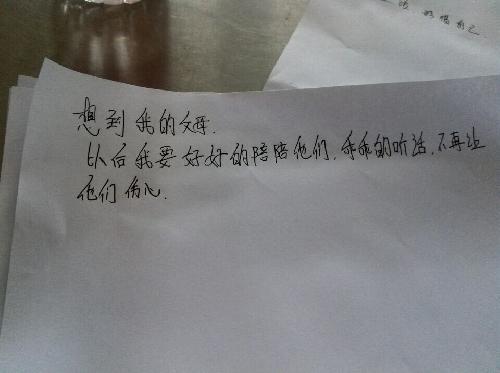 想到我的父母.
以后我要好好的陪陪他们.乖乖的听话.不再让
他们伤心.